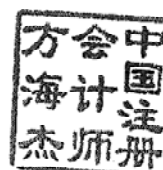 中国注册
会计师
方海杰